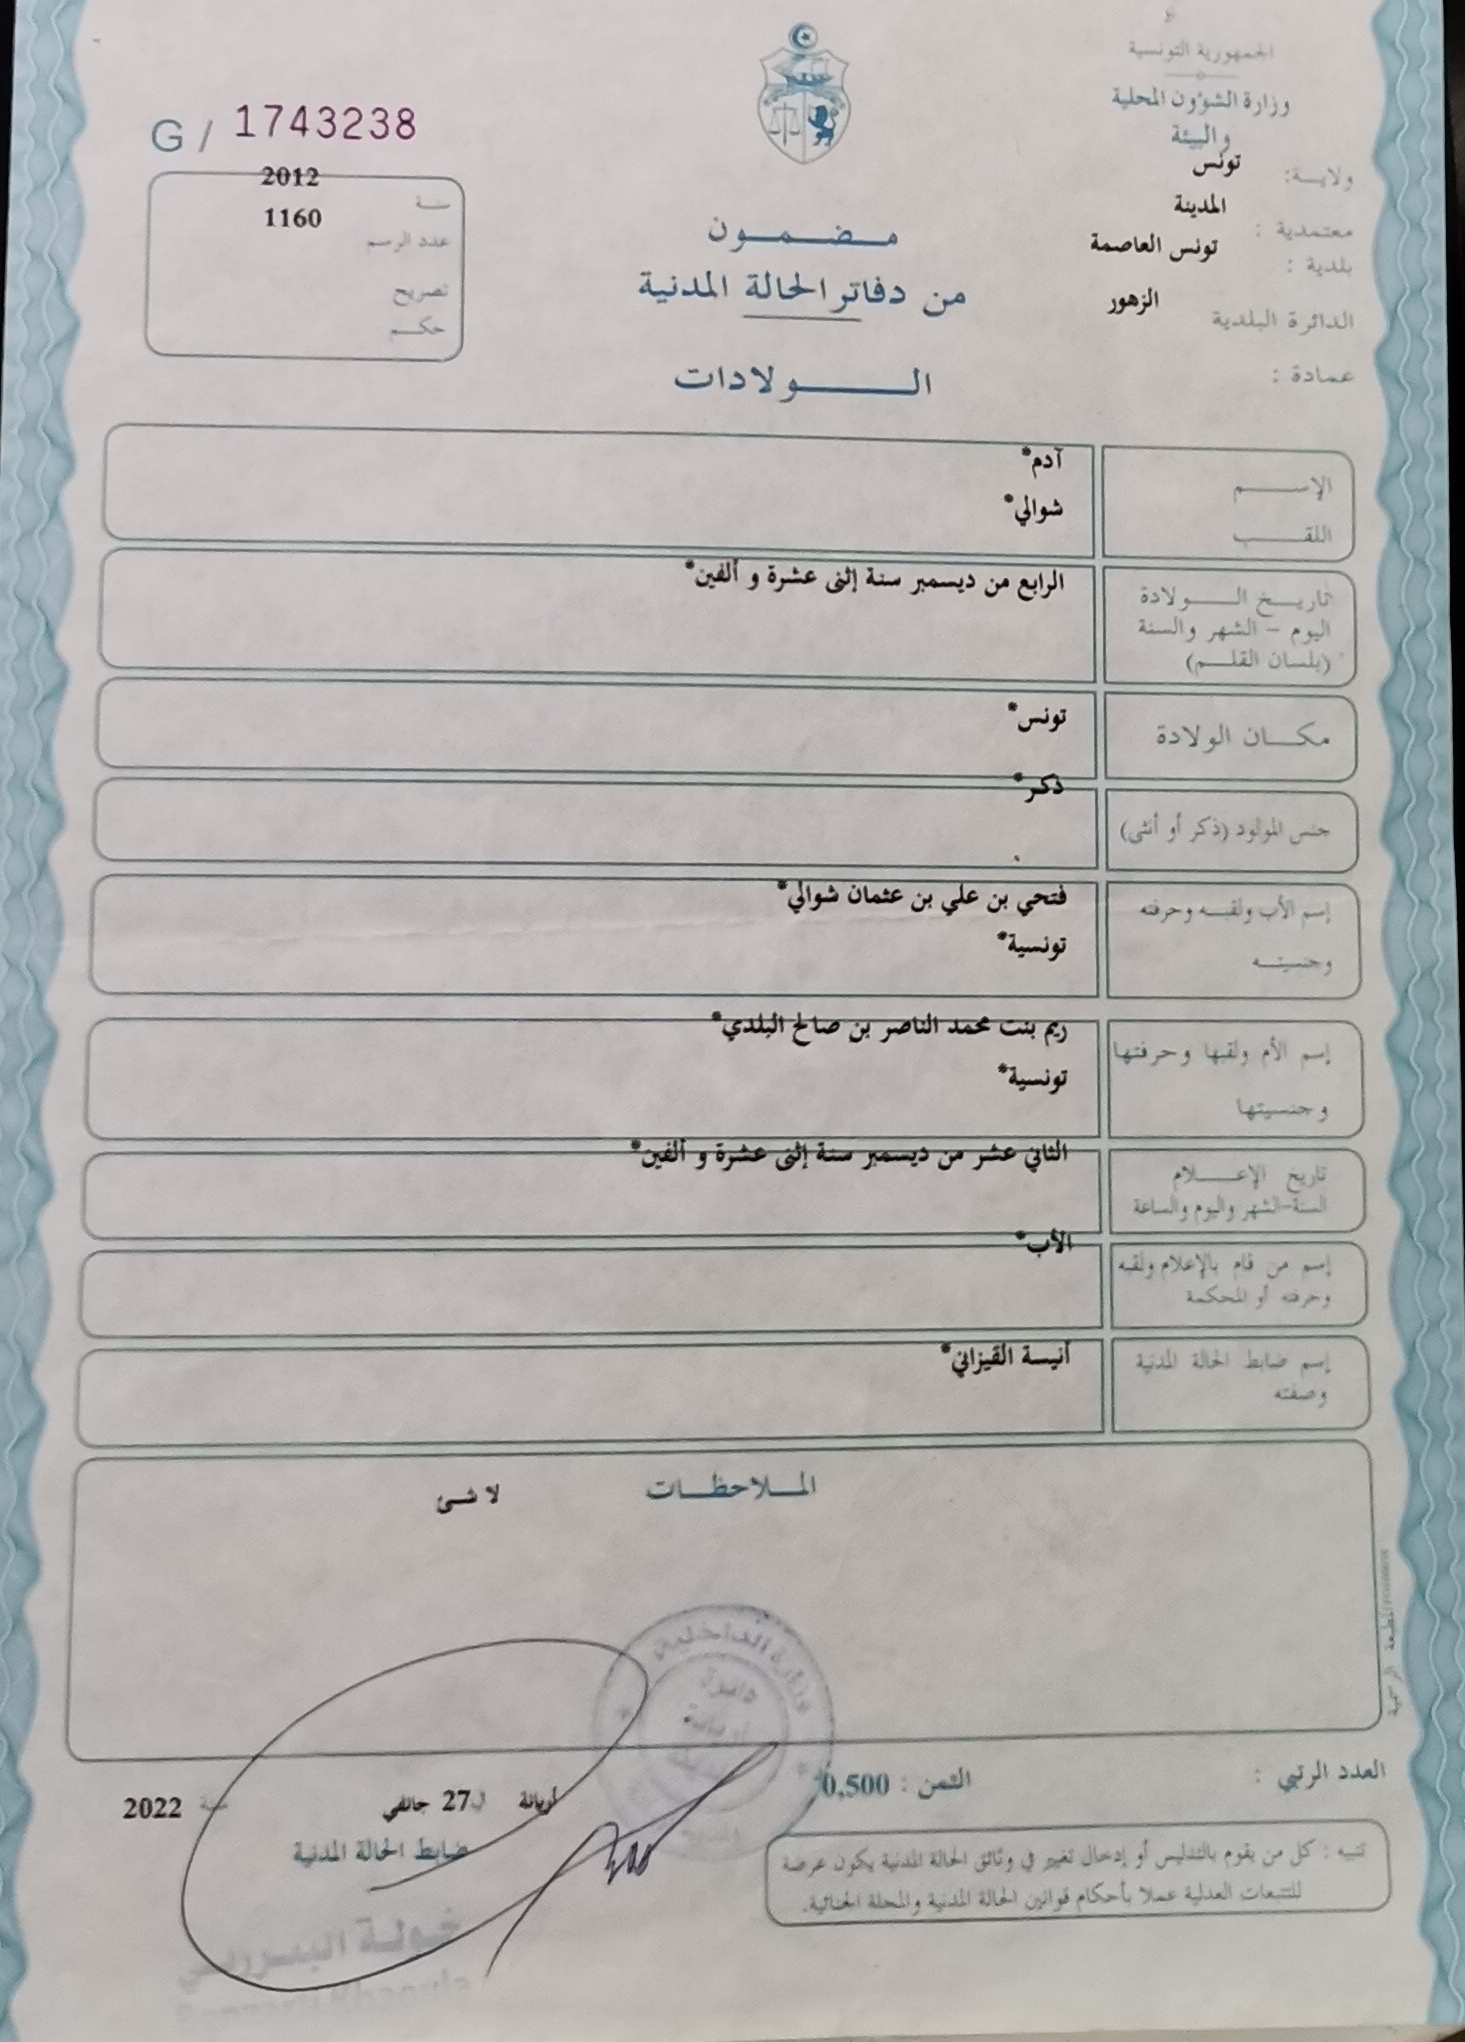 الجمهورية التونسية
وزارة الشؤون المحلية
والبيئة
ولاية: تونس
معتمدية : المدينة
بلدية : تونس العاصمة
الدائرة البلدية الزهور
عمادة :
G / 1743238
سنة 2012
عدد الرسم 1160
تصريح
حكم
مضمون
من دفاتر الحالة المدنية
الولادات
الإسم آدم*
اللقب شوالي*
تاريخ الولادة الرابع من ديسمبر سنة إثنى عشرة و ألفين*
اليوم - الشهر والسنة
(بلسان القلم)
مكان الولادة تونس*
جنس المولود (ذكر أو أنثى) ذكر*
إسم الأب ولقبه وحرفته فتحي بن علي بن عثمان شوالي*
وجنسيته تونسية*
إسم الأم ولقبها وحرفتها ريم بنت محمد الناصر بن صالح البلدي*
وجنسيتها تونسية*
تاريخ الإعلام الثاني عشر من ديسمبر سنة إثنى عشرة و ألفين*
السنة-الشهر واليوم والساعة
إسم من قام بالإعلام ولقبه الأب*
وحرفته أو المحكمة
إسم ضابط الحالة المدنية أنيسة القيزاني*
وصفته
الملاحظات لا شئ
المطبعة الرسمية
وزارة الداخلية
دائرة
أريانة
العدد الرتبي :
الثمن : 0,500
أريانة في 27 جانفي سنة 2022
ضابط الحالة المدنية
تنبيه : كل من يقوم بالتدليس أو إدخال تغيير في وثائق الحالة المدنية يكون عرضة
للتتبعات العدلية عملا بأحكام قوانين الحالة المدنية والمجلة الجنائية.
خولة